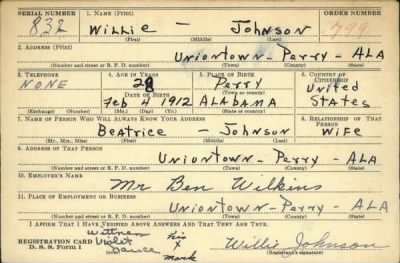 SERIAL NUMBER 1. NAME (Print) ORDER NUMBER
832 Willie — Johnson 799
(First) (Middle) (Last)
2. ADDRESS (Print)
Uniontown - Perry - ALA
(Number and street or R. F. D. number) (Town) (County) (State)
3. TELEPHONE 4. AGE IN YEARS 5. PLACE OF BIRTH 6. COUNTRY OF CITIZENSHIP
NONE 28 Perry United
DATE OF BIRTH (Town or county)
Feb 4 1912 ALABAMA States
(Exchange) (Number) (Mo.) (Day) (Yr.) (State or country)
7. NAME OF PERSON WHO WILL ALWAYS KNOW YOUR ADDRESS 8. RELATIONSHIP OF THAT PERSON
Beatrice — Johnson Wife
(Mr., Mrs., Miss) (First) (Middle) (Last)
9. ADDRESS OF THAT PERSON
Uniontown - Perry - ALA
(Number and street or R. F. D. number) (Town) (County) (State)
10. EMPLOYER'S NAME
Mr Ben Wilkins
11. PLACE OF EMPLOYMENT OR BUSINESS
Uniontown - Perry - ALA
(Number and street or R. F. D. number) (Town) (County) (State)
I AFFIRM THAT I HAVE VERIFIED ABOVE ANSWERS AND THAT THEY ARE TRUE.
Wittness his
REGISTRATION CARD Violet x Willie Johnson
D. S. S. Form 1 mark (Registrant's signature)